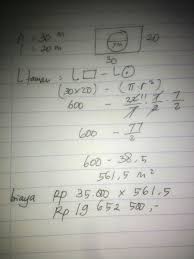 P = 30 m
l = 20 m
7m
20
30
L taman = L□ - L⊙
(30×20) - (π.r²)
600 - 22/7 . 7/2 . 7/2
600 - 77/2
600 - 38,5
561,5 m²
biaya Rp 35.000 × 561,5
Rp 19 652 500,-